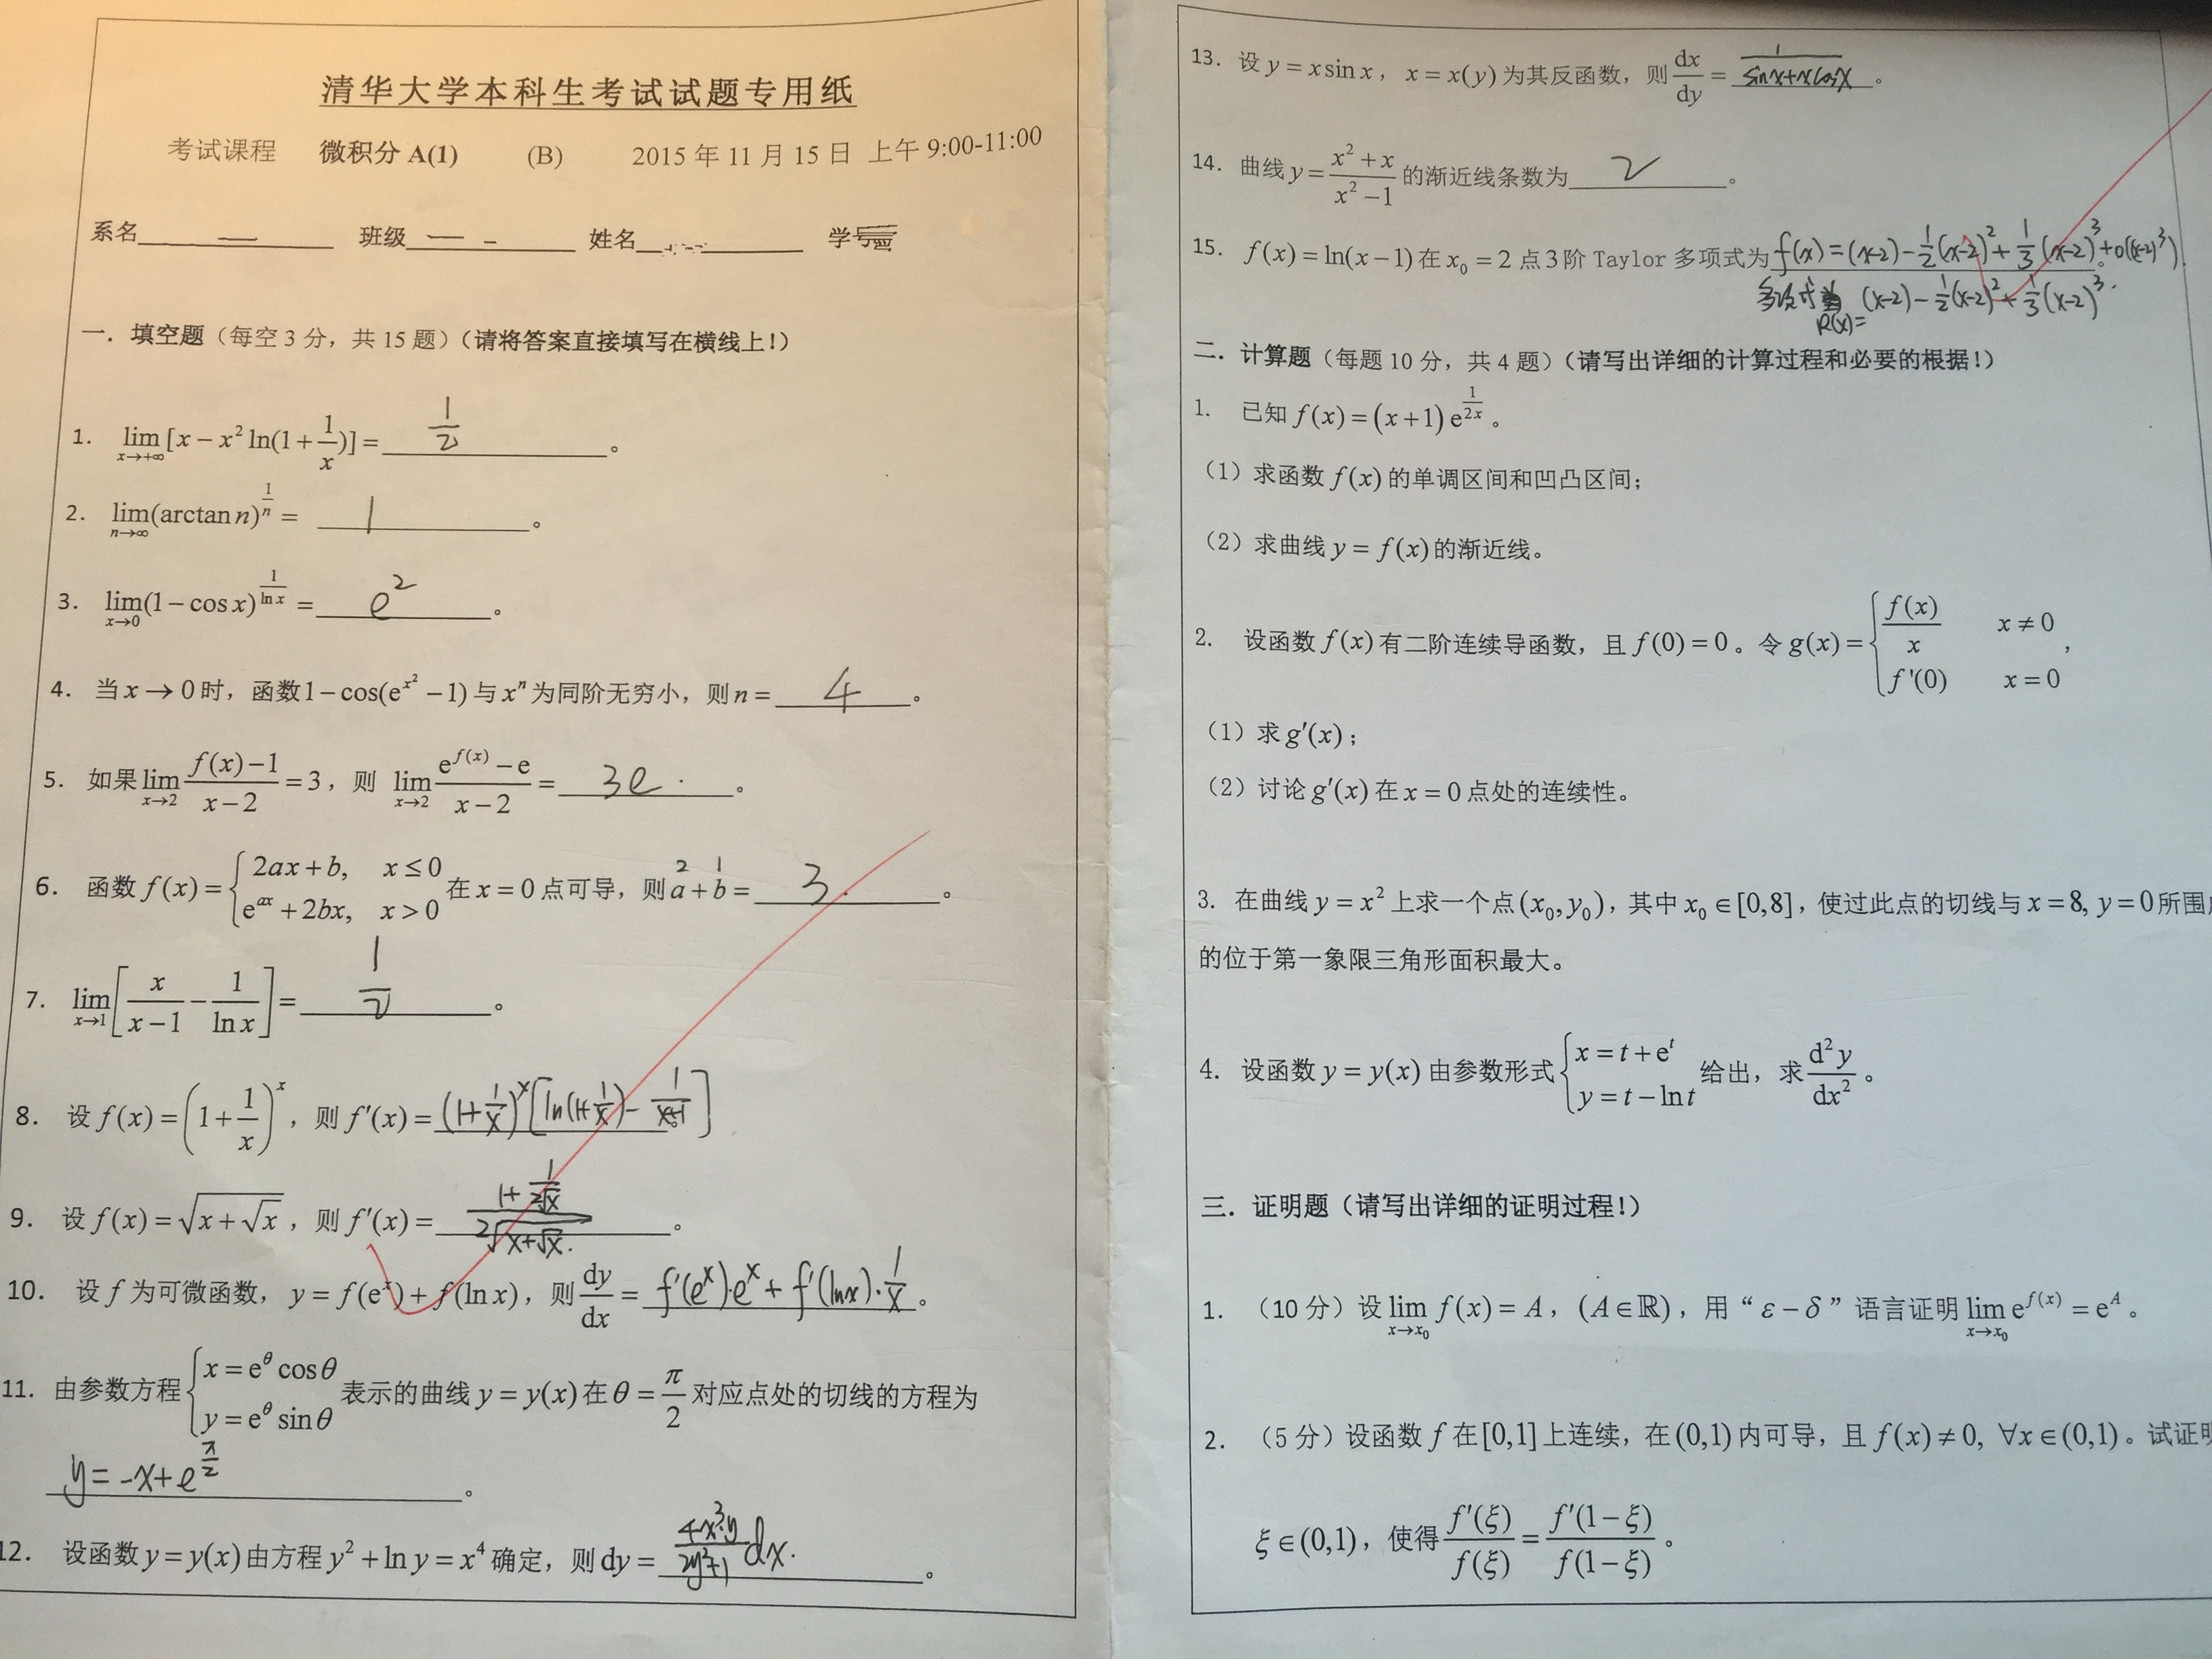 清华大学本科生考试试题专用纸
考试课程 微积分 A(1) (B) 2015 年 11 月 15 日 上午 9:00-11:00
系名 班级 姓名 学号
一. 填空题（每空 3 分，共 15 题）（请将答案直接填写在横线上！）
1. lim_{x→+∞} [x − x² ln(1 + 1/x)] = 1/2 。
2. lim_{n→∞} (arctan n)^{1/n} = 1 。
3. lim_{x→0} (1 − cos x)^{1/ln x} = e² 。
4. 当 x → 0 时，函数 1 − cos(e^{x²} − 1) 与 xⁿ 为同阶无穷小，则 n = 4 。
5. 如果 lim_{x→2} (f(x) − 1)/(x − 2) = 3，则 lim_{x→2} (e^{f(x)} − e)/(x − 2) = 3e 。
6. 函数 f(x) = { 2ax + b, x ≤ 0
e^{ax} + 2bx, x > 0 在 x = 0 点可导，则 a + b = 3 。
2 1
7. lim_{x→1} [x/(x − 1) − 1/ln x] = 1/2 。
8. 设 f(x) = (1 + 1/x)^x，则 f′(x) = (1+1/x)^x [ln(1+1/x) − 1/(x+1)] 。
9. 设 f(x) = √(x + √x)，则 f′(x) = (1 + 1/(2√x))/(2√(x+√x)) 。
10. 设 f 为可微函数，y = f(e^x) + f(ln x)，则 dy/dx = f′(e^x)·e^x + f′(lnx)·1/x 。
11. 由参数方程 { x = e^θ cos θ
y = e^θ sin θ 表示的曲线 y = y(x) 在 θ = π/2 对应点处的切线的方程为
y = −x + e^{π/2} 。
12. 设函数 y = y(x) 由方程 y² + ln y = x⁴ 确定，则 dy = (4x³·y)/(2y²+1) dx 。
13. 设 y = x sin x，x = x(y) 为其反函数，则 dx/dy = 1/(sinx+xcosx) 。
14. 曲线 y = (x² + x)/(x² − 1) 的渐近线条数为 2 。
15. f(x) = ln(x − 1) 在 x₀ = 2 点 3 阶 Taylor 多项式为 f(x) = (x−2) − 1/2(x−2)² + 1/3(x−2)³ + o((x−2)³) 。
多项式 R(x)= (x−2) − 1/2(x−2)² + 1/3(x−2)³.
二. 计算题（每题 10 分，共 4 题）（请写出详细的计算过程和必要的根据！）
1. 已知 f(x) = (x + 1) e^{1/(2x)} 。
（1）求函数 f(x) 的单调区间和凹凸区间；
（2）求曲线 y = f(x) 的渐近线。
2. 设函数 f(x) 有二阶连续导函数，且 f(0) = 0 。令 g(x) = { f(x)/x x ≠ 0
f '(0) x = 0 ，
（1）求 g′(x)；
（2）讨论 g′(x) 在 x = 0 点处的连续性。
3. 在曲线 y = x² 上求一个点 (x₀, y₀)，其中 x₀ ∈ [0,8]，使过此点的切线与 x = 8, y = 0 所围
的位于第一象限三角形面积最大。
4. 设函数 y = y(x) 由参数形式 { x = t + e^t
y = t − ln t 给出，求 d²y/dx² 。
三. 证明题（请写出详细的证明过程！）
1. （10 分）设 lim_{x→x₀} f(x) = A，(A ∈ ℝ)，用 “ ε − δ ” 语言证明 lim_{x→x₀} e^{f(x)} = e^A 。
2. （5 分）设函数 f 在 [0,1] 上连续，在 (0,1) 内可导，且 f(x) ≠ 0, ∀x ∈ (0,1) 。试证明
ξ ∈ (0,1)，使得 f′(ξ)/f(ξ) = f′(1 − ξ)/f(1 − ξ) 。